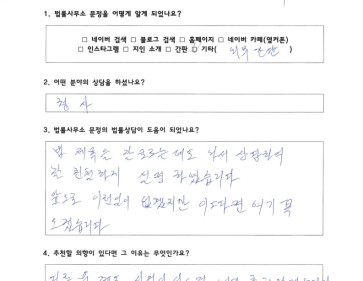 1. 법률사무소 문정을 어떻게 알게 되었나요?
□ 네이버 검색 □ 블로그 검색 □ 홈페이지 □ 네이버 카페(엘커톤)
□ 인스타그램 □ 지인 소개 □ 간판 □ 기타( 외부 간판 )
2. 어떤 분야의 상담을 하셨나요?
형 사
3. 법률사무소 문정의 법률상담이 도움이 되었나요?
법 제목은 잘 모르는데도 와서 상담하니
잘 친절하게 설명 하였습니다
앞으로 이런일이 없겠지만 있다면 여기 꼭
오겠습니다
4. 추천할 의향이 있다면 그 이유는 무엇인가요?